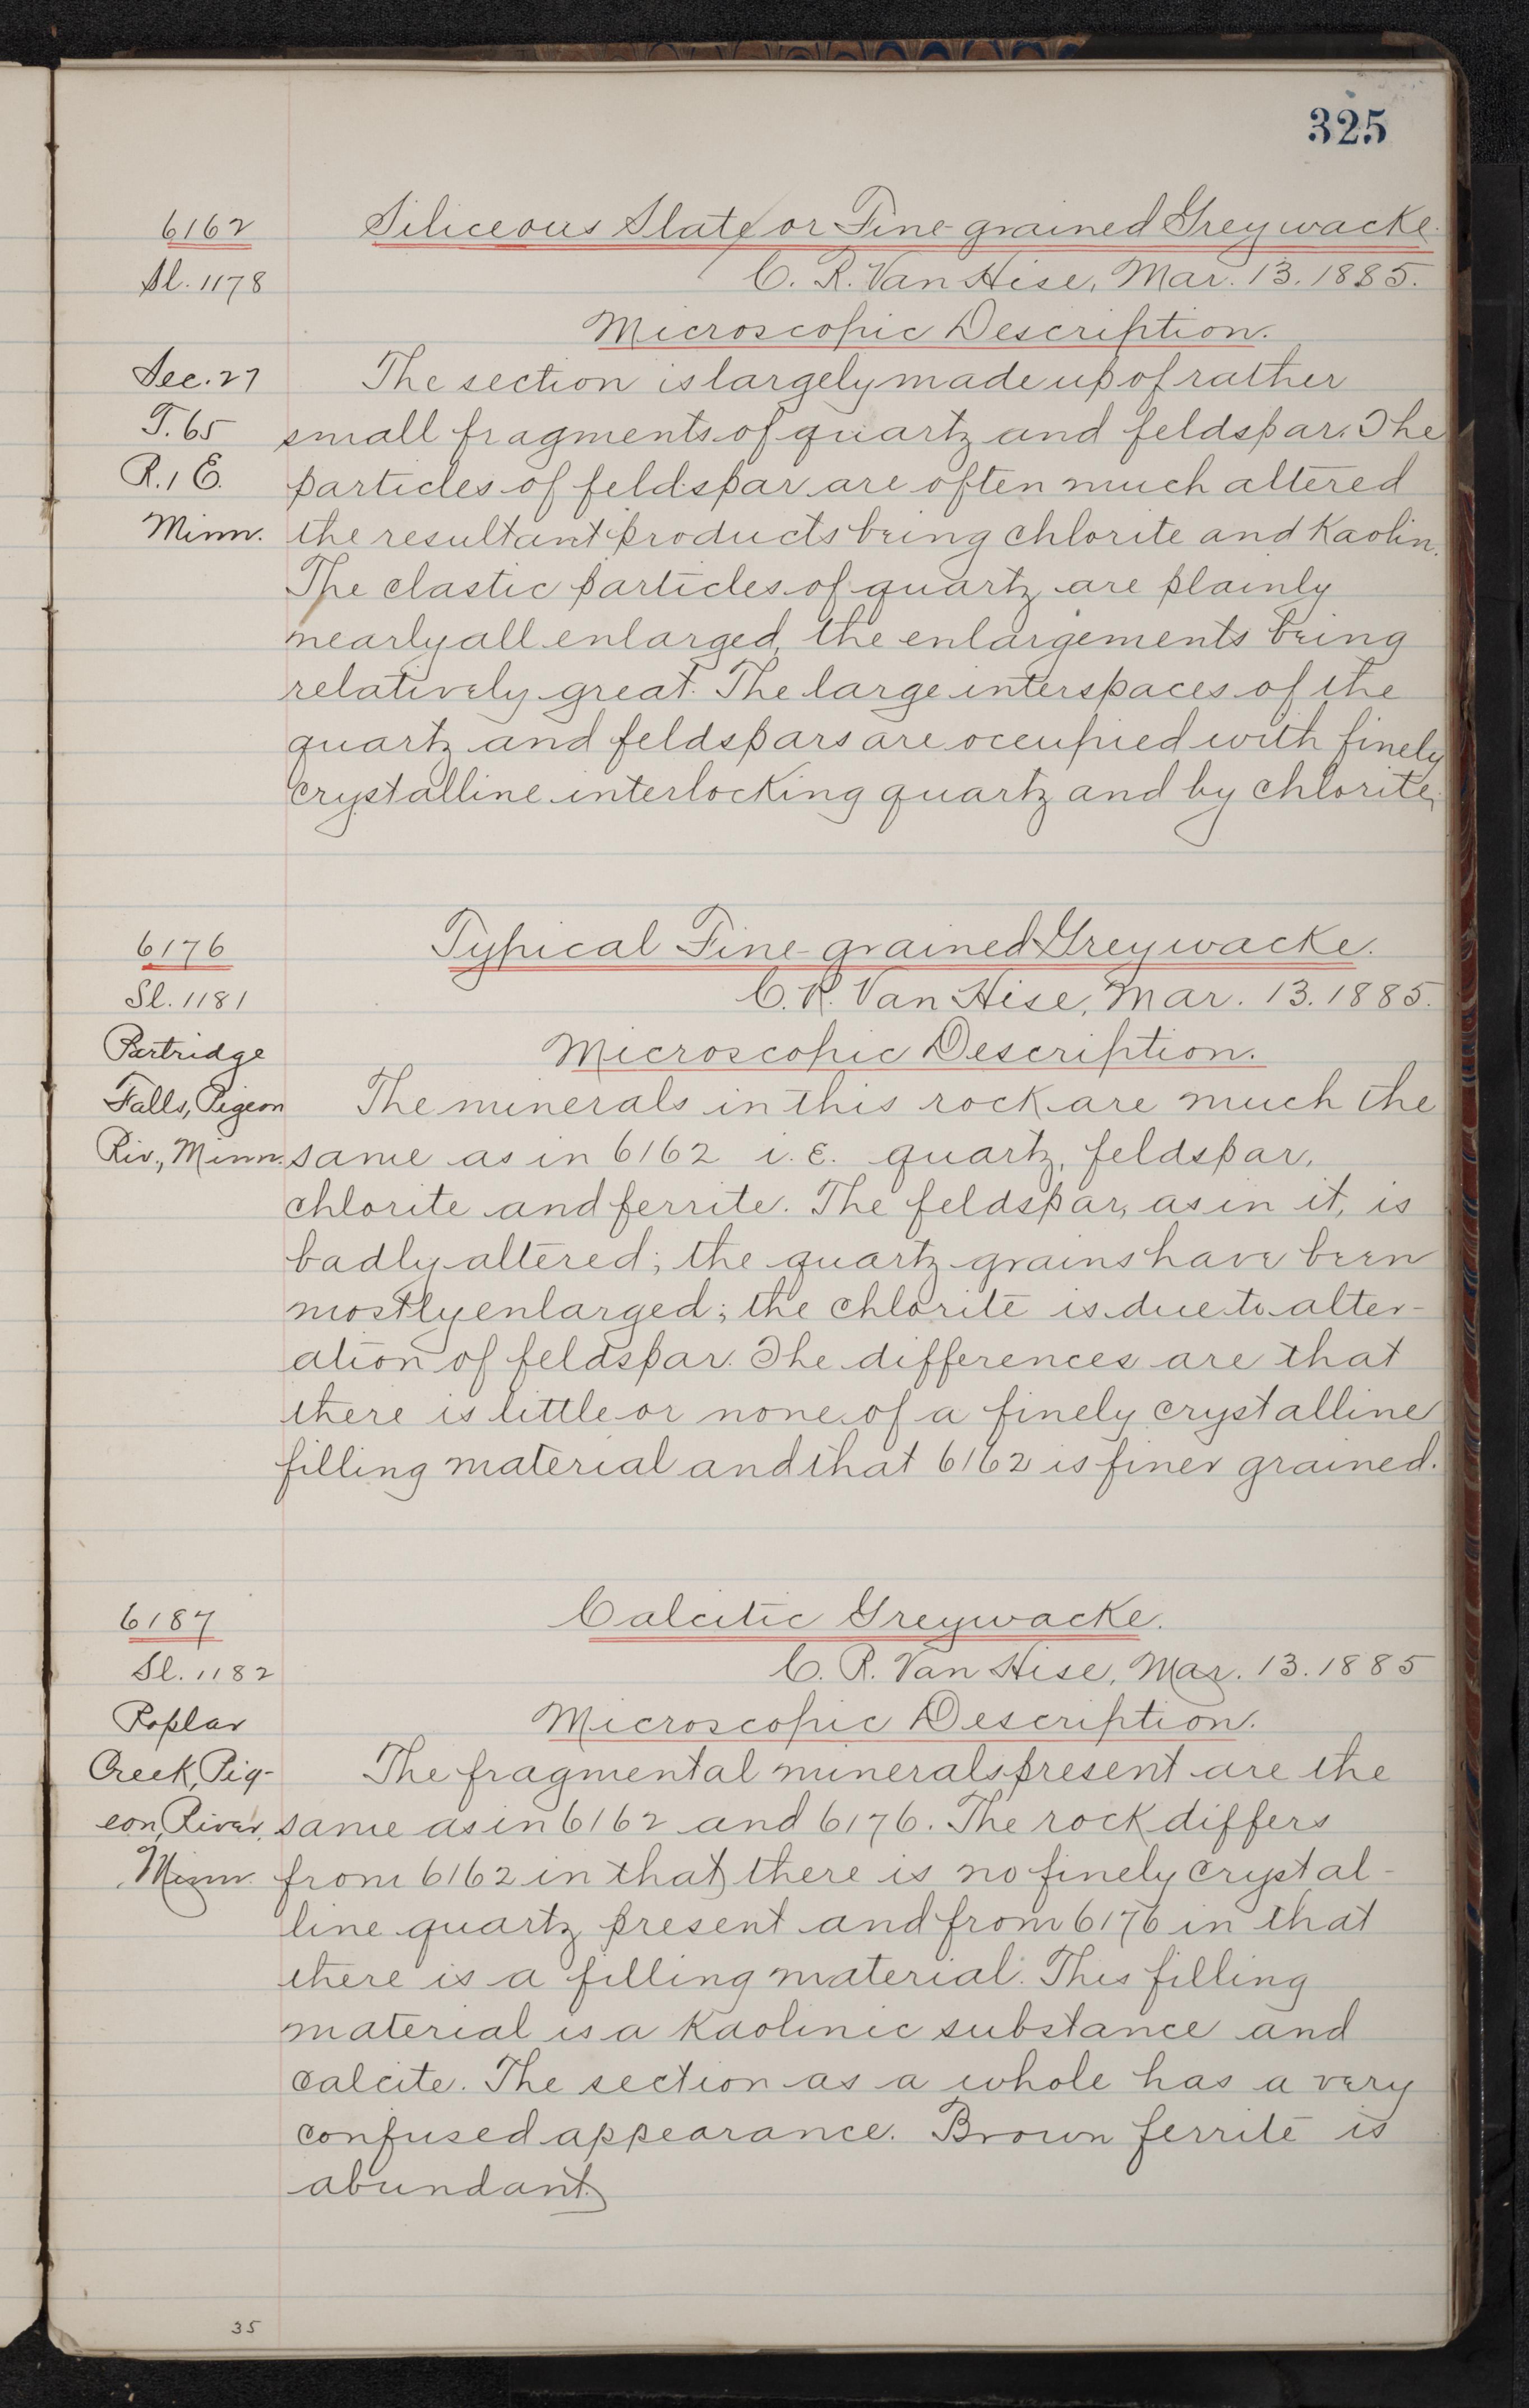 325
6162 Siliceous Slate or Fine-grained Greywacke.
Sl. 1178 C. R. Van Hise, Mar. 13. 1885.
Microscopic Description.
Sec. 27 The section is largely made up of rather
T. 65 small fragments of quartz and feldspar. The
R. 1 E. particles of feldspar are often much altered
Minn. the resultant products being chlorite and Kaolin.
The clastic particles of quartz are plainly
nearly all enlarged, the enlargements being
relatively great. The large interspaces of the
quartz and feldspars are occupied with finely
crystalline interlocking quartz and by chlorite.
6176 Typical Fine-grained Greywacke.
Sl. 1181 C. R. Van Hise, Mar. 13. 1885.
Partridge Microscopic Description.
Falls, Pigeon The minerals in this rock are much the
Riv., Minn. same as in 6162 i.e. quartz, feldspar,
chlorite and ferrite. The feldspar, as in it, is
badly altered; the quartz grains have been
mostly enlarged; the chlorite is due to alter-
ation of feldspar. The differences are that
there is little or none of a finely crystalline
filling material and that 6162 is finer grained.
6187 Calcitic Greywacke.
Sl. 1182 C. R. Van Hise, Mar. 13. 1885
Poplar Microscopic Description.
Creek, Pig- The fragmental minerals present are the
eon River, same as in 6162 and 6176. The rock differs
Minn. from 6162 in that there is no finely crystal-
line quartz present and from 6176 in that
there is a filling material. This filling
material is a Kaolinic substance and
calcite. The section as a whole has a very
confused appearance. Brown ferrite is
abundant.
35